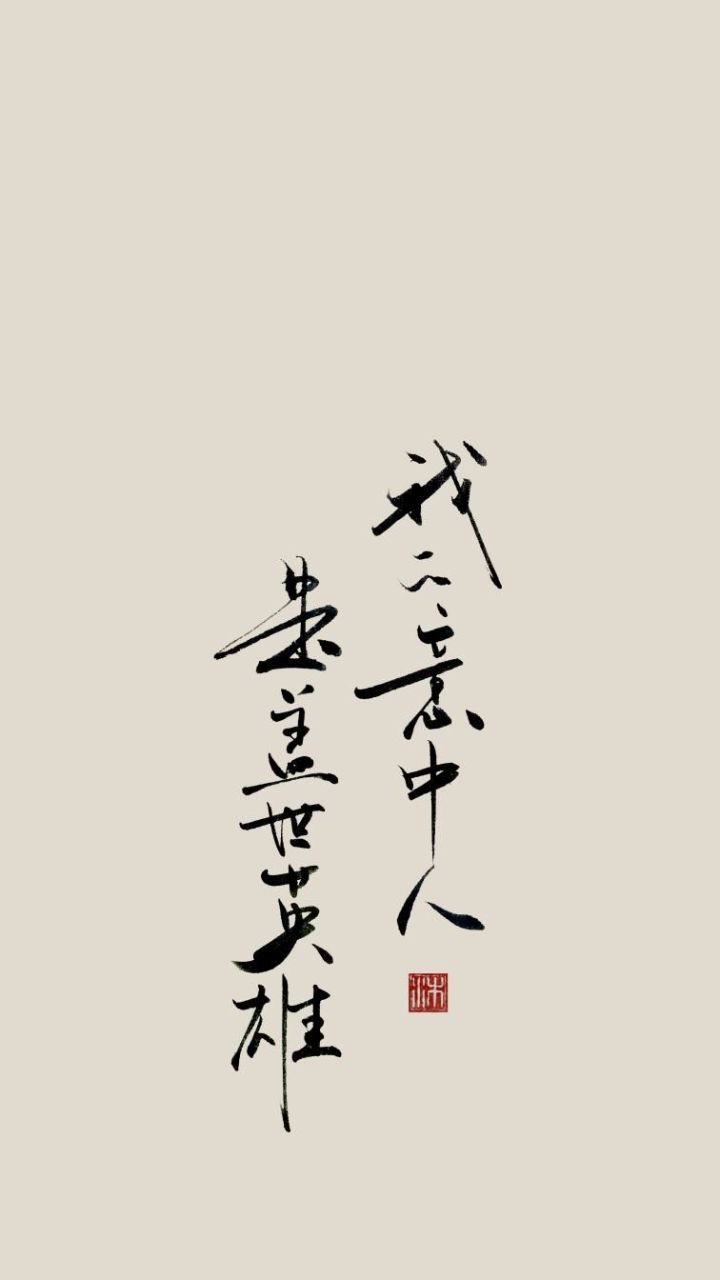 我的意中人
是盖世英雄